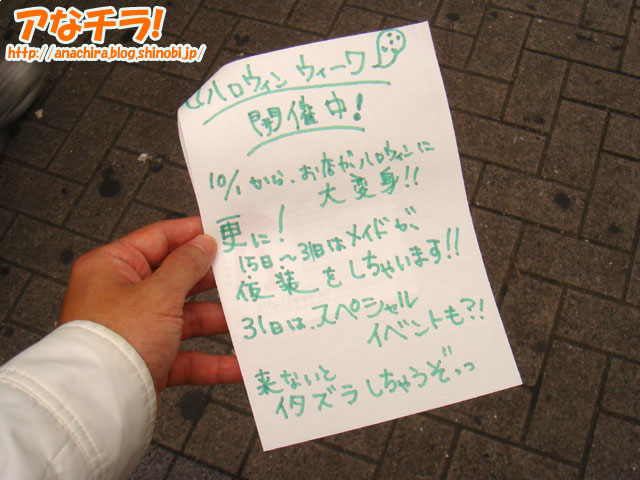 アなチラ!
http://anachira.blog.shinobi.jp/
ハロウィンウィーク
開催中!
10/1から、お店がハロウィンに
大変身!!
更に!
15日〜31日はメイドが、
仮装をしちゃいます!!
31日は、スペシャル
イベントも?!
来ないと
イタズラしちゃうぞっっ